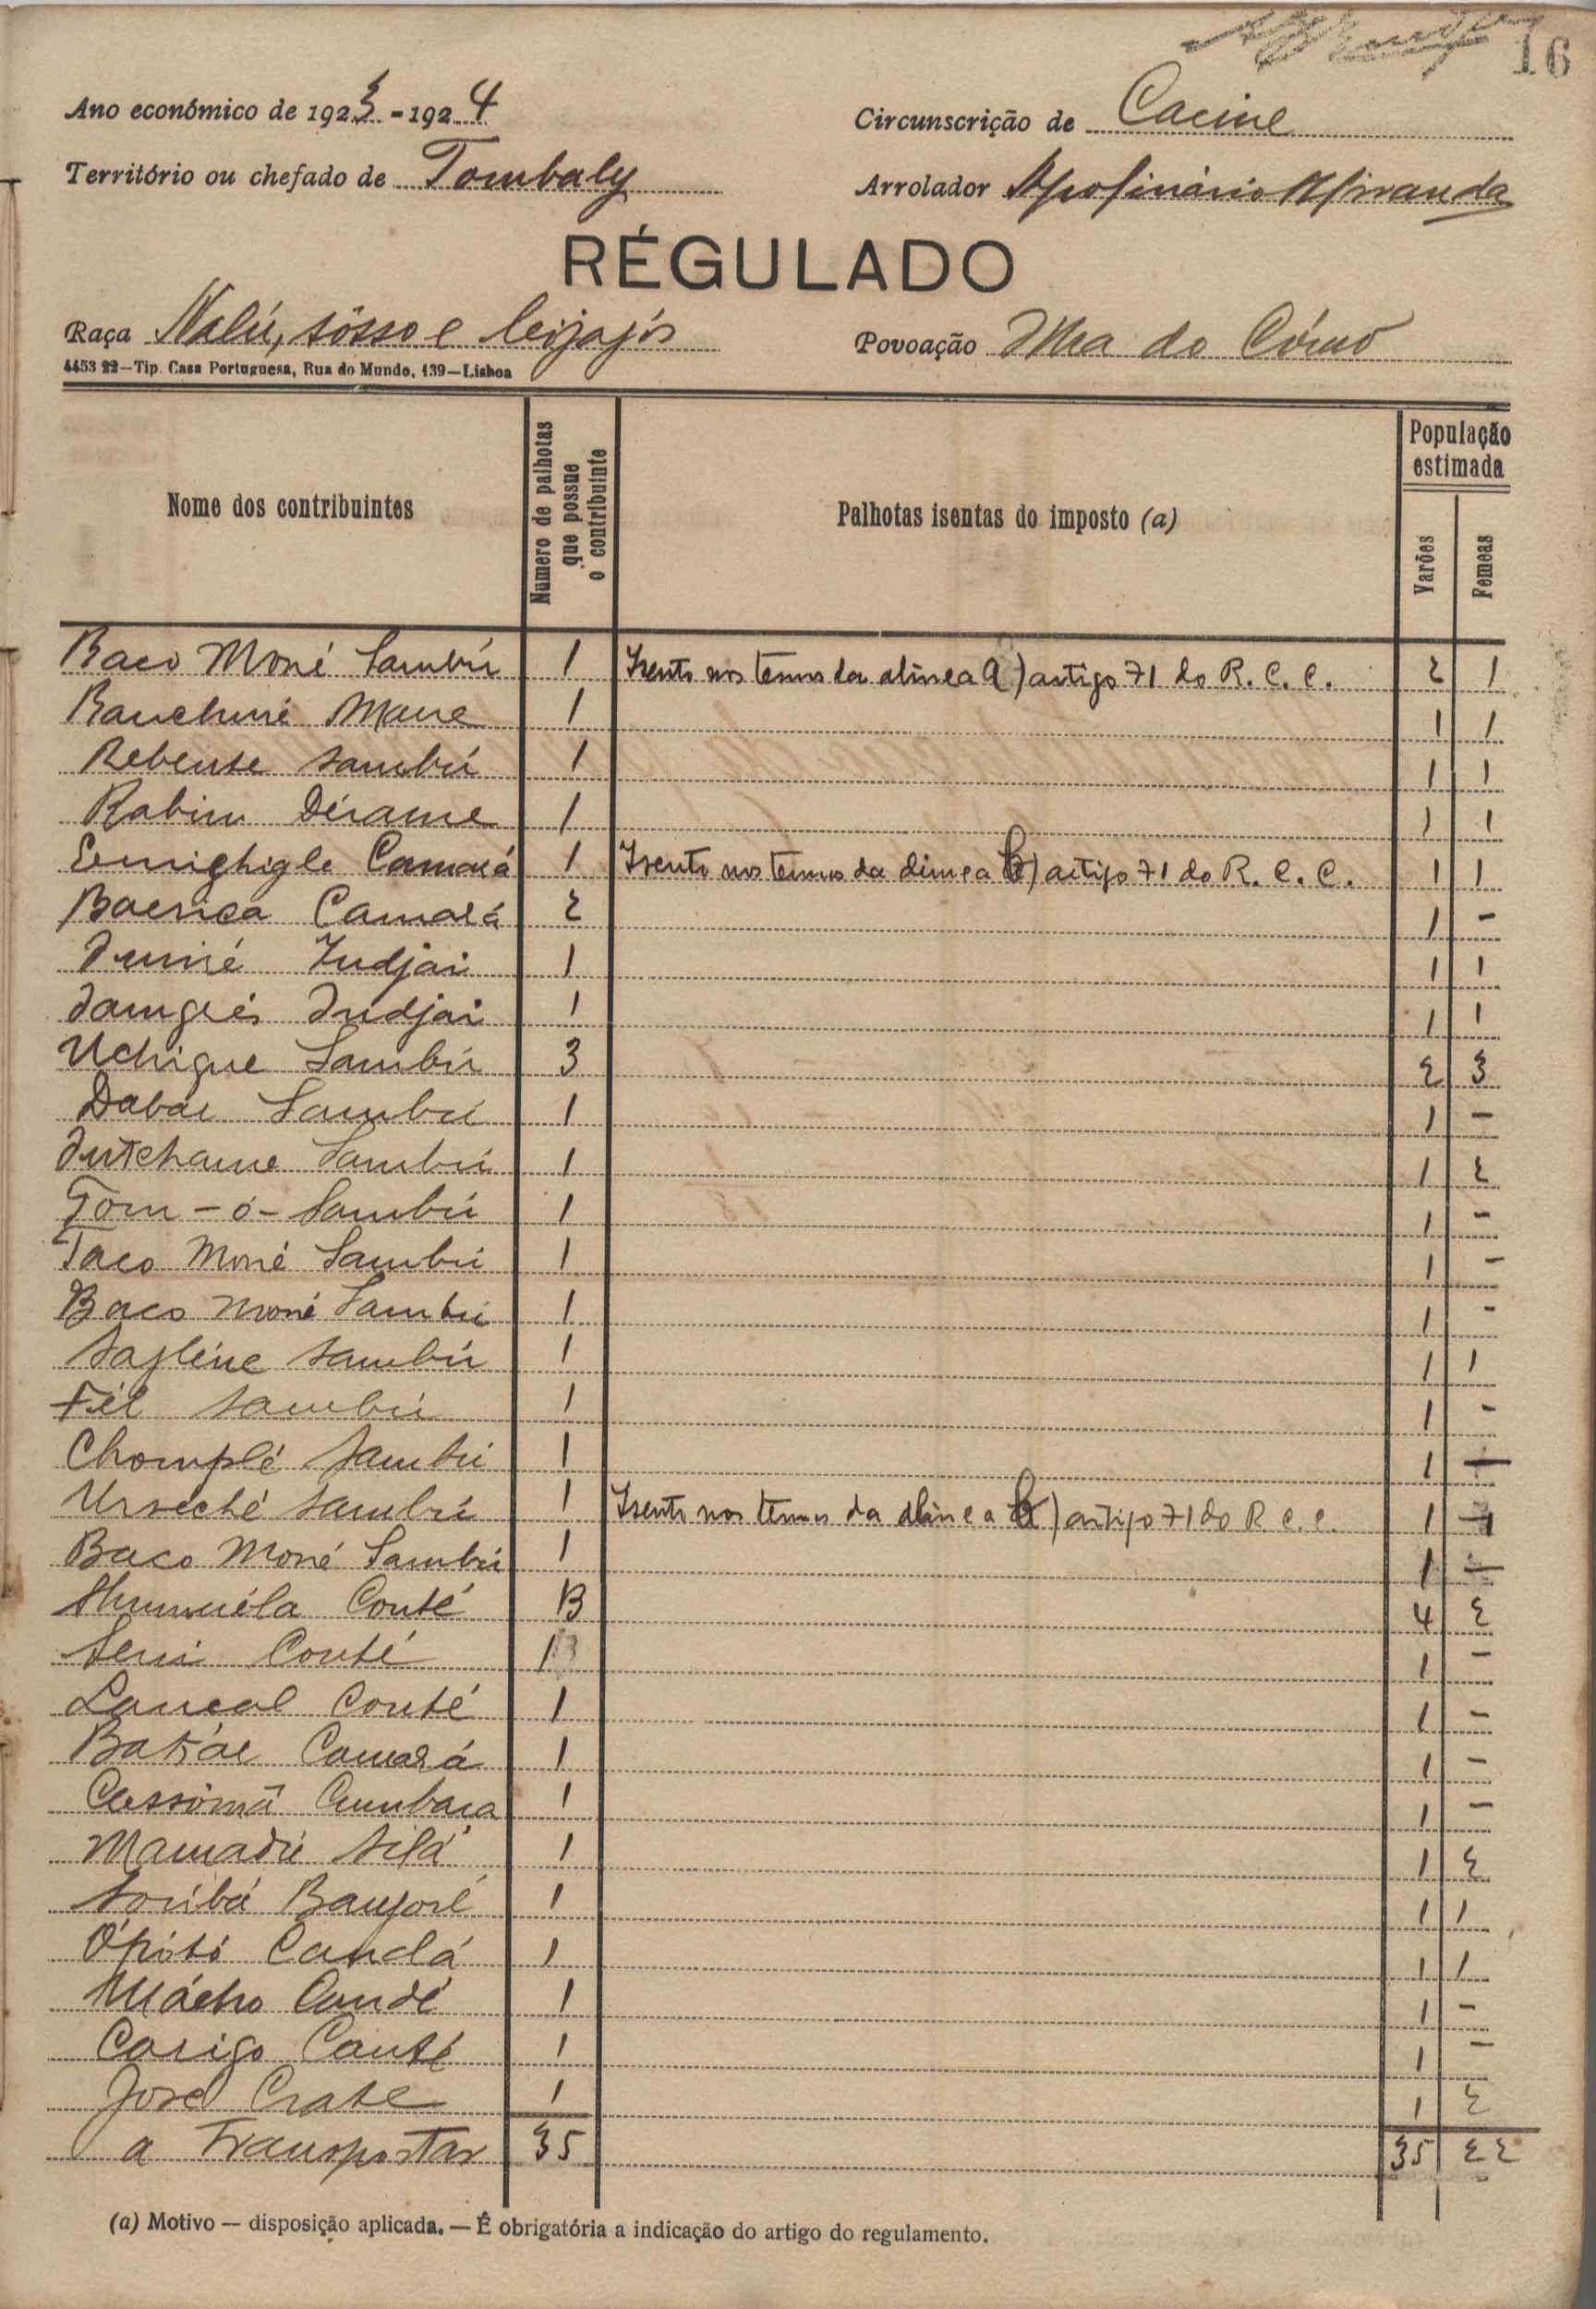 16
Ano económico de 1923-1924
Circunscrição de Cacine
Território ou chefado de Tombaly
Arrolador Apolinário Miranda
RÉGULADO
Raça Nalú, sôsso e
Povoação Ilha do Cómo
4453 22—Tip. Casa Portuguesa, Rua do Mundo, 139—Lisboa
Nome dos contribuintes
Numero de palhotas que possue o contribuinte
Palhotas isentas do imposto (a)
População estimada
Varões
Femeas
Baco Moné Sambú 1 Isento nos termos da alinea a) artigo 71 do R. C. C. 2 1
Mane 1 1 1
Rebense Sambú 1 1 1
Rabim Dérame 1 1 1
Camará 1 Isento nos termos da alinea b) artigo 71 do R. C. C. 1 1
Camará 2 1 -
Indjai 1 1 1
Indjai 1 1 1
Uchigue Sambú 3 2 3
Dabae Sambú 1 1 -
Intchame Sambú 1 1 2
Tom-ó-Sambú 1 1 -
Taco Moné Sambú 1 1 -
Baco Moné Sambú 1 1 -
Sambú 1 1 1
Sambú 1 1 -
Chomplé Sambú 1 1 -
Sambú 1 Isento nos termos da alinea b) artigo 71 do R. C. C. 1 1
Baco Moné Sambú 1 1 -
Conté 3 4 2
Conté 1 1 -
Lancal Conté 1 1 -
Camará 1 1 -
1 1 -
Mamadú Silá 1 1 2
1 1 1
1 1 1
Candé 1 1 -
Carigo Canté 1 1 -
José Crate 1 1 2
a Transportar 35 35 22
(a) Motivo — disposição aplicada. — É obrigatória a indicação do artigo do regulamento.